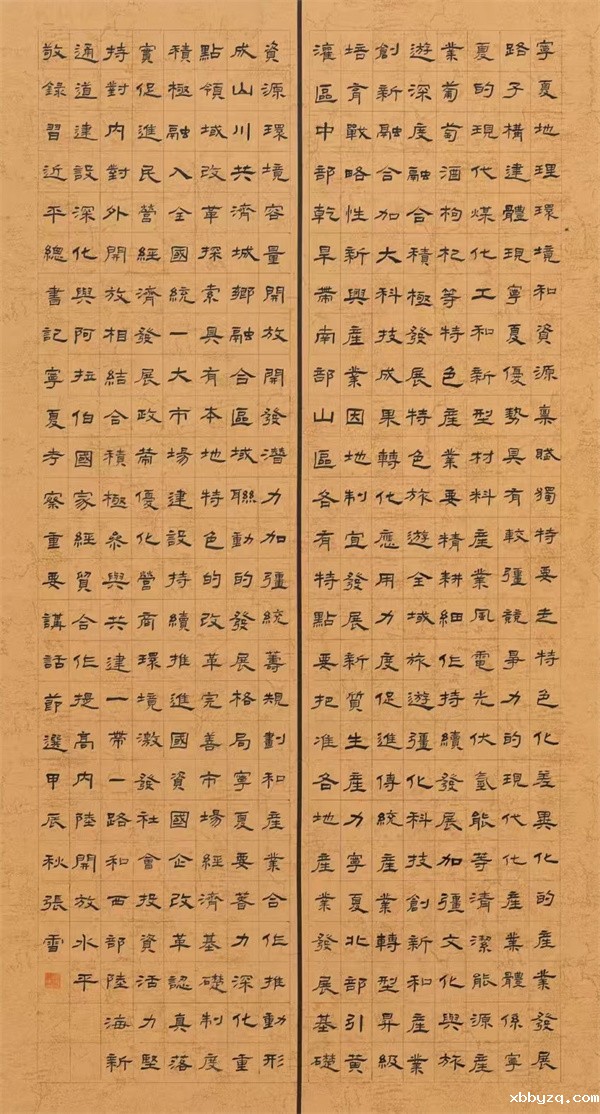 寧夏地理環境和資源稟賦獨特要走特色化差異化的產業發展
路子構建體現寧夏優勢具有較彊競爭力的現代化產業體係寧
夏的現代煤化工和新型材料產業風電光伏氫能等清潔能源產
業葡萄酒枸杞等特色產業要精耕細作持續發展加彊文化與旅
遊深度融合積極發展特色旅遊全域旅遊彊化科技創新和產業
創新融合加大科技成果轉化應用力度促進傳統產業轉型昇級
培育戰略性新興產業因地制宜發展新質生產力寧夏北部引黃
灌區中部乾旱帶南部山區各有特點要把准各地產業發展基礎
資源環境容量開放開發潛力加彊統籌規劃和產業合作推動形
成山川共濟城鄉融合區域聯動的發展格局寧夏要著力深化重
點領域改革探索具有本地特色的改革完善市場經濟基礎制度
積極融入全國統一大市場建設持續推進國資國企改革認真落
實促進民營經濟發展政策優化營商環境激發社會投資活力堅
持對內對外開放相結合積極參與共建一帶一路和西部陸海新
通道建設深化與阿拉伯國家經貿合作提高內陸開放水平
敬錄習近平總書記寧夏考察重要講話節選甲辰秋張雪
xbbyzq.com